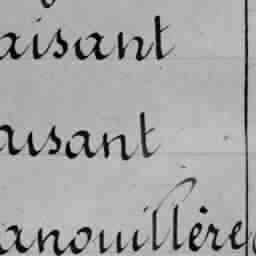 aisant
aisant
anouillère